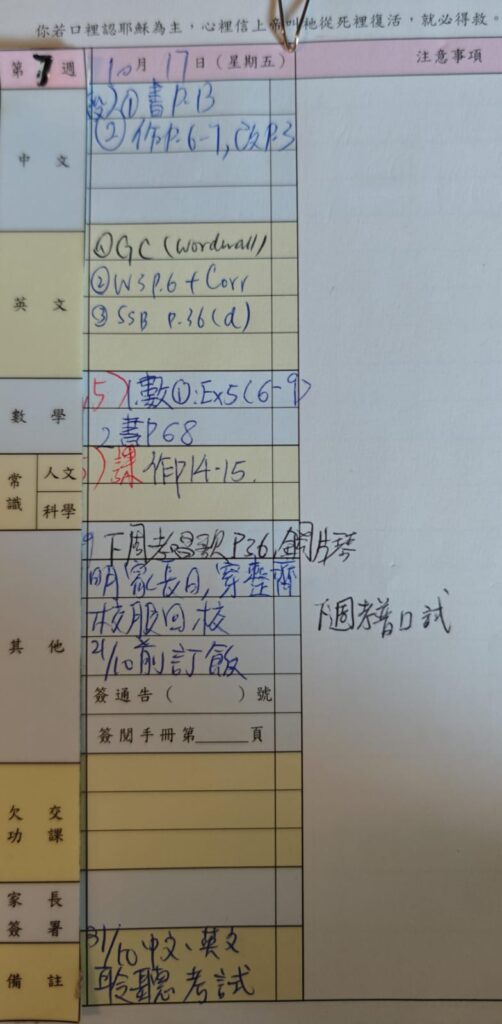 你若口裡認耶穌為主,心裡信上帝叫祂從死裡復活,就必得救。
第7週 10月17日(星期五) 注意事項
中文
① 書P.13
② 作P.6-7,改P.3
英文
①GC (Wordwall)
②WS P.6 + Corr
③SSB P.36(d)
數學
5) 1.數①:Ex5(6-9)
2 書P68
常識 人文 科學
課作P14-15.
其他
下周考唱歌P36,鋼片琴
明家長日,穿整齊
校服回校
21/10前訂飯
下週考普口試
簽通告( )號
簽閱手冊第____頁
欠交功課
家長簽署
備註
31/10 中文、英文
聆聽考試